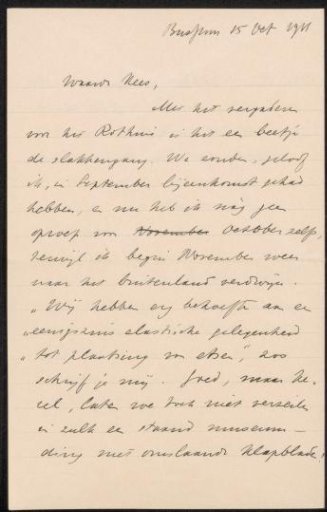 Bussum 15 Oct 1911
Waarde Kees,
Met het vergaderen
van het Rothuis is het een beetje
de slakkengang. We zouden, geloof
ik, in September bijeenkomst gehad
hebben, en nu heb ik nog geen
oproep van November October zelfs,
terwijl ik begin November weer
naar het buitenland verdwijn.
"Wij hebben erg behoefte aan een
"eenigszins elastische gelegenheid
"tot plaatsing van etsen", zoo
schrijf je mij. Goed, maar
laten we toch niet vervallen
in zulk een staand museum-
ding met omslaande klapbladen,